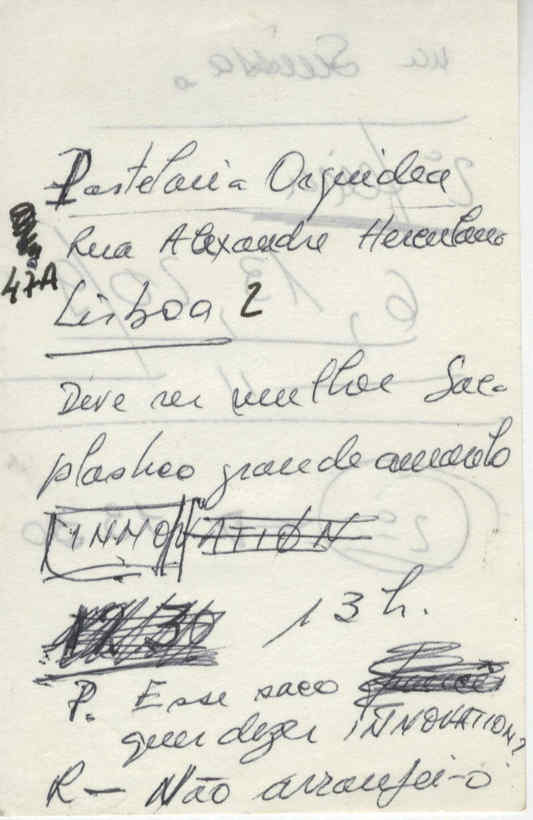 Pastelaria Orquidea
Rua Alexandre Herculano
47A
Lisboa 2
Deve ser mulher Saco
plastico grande amarelo
INNOVATION
12 30 13 h.
P. Esse saco
quer dizer INNOVATION?
R — Não arranjei-o